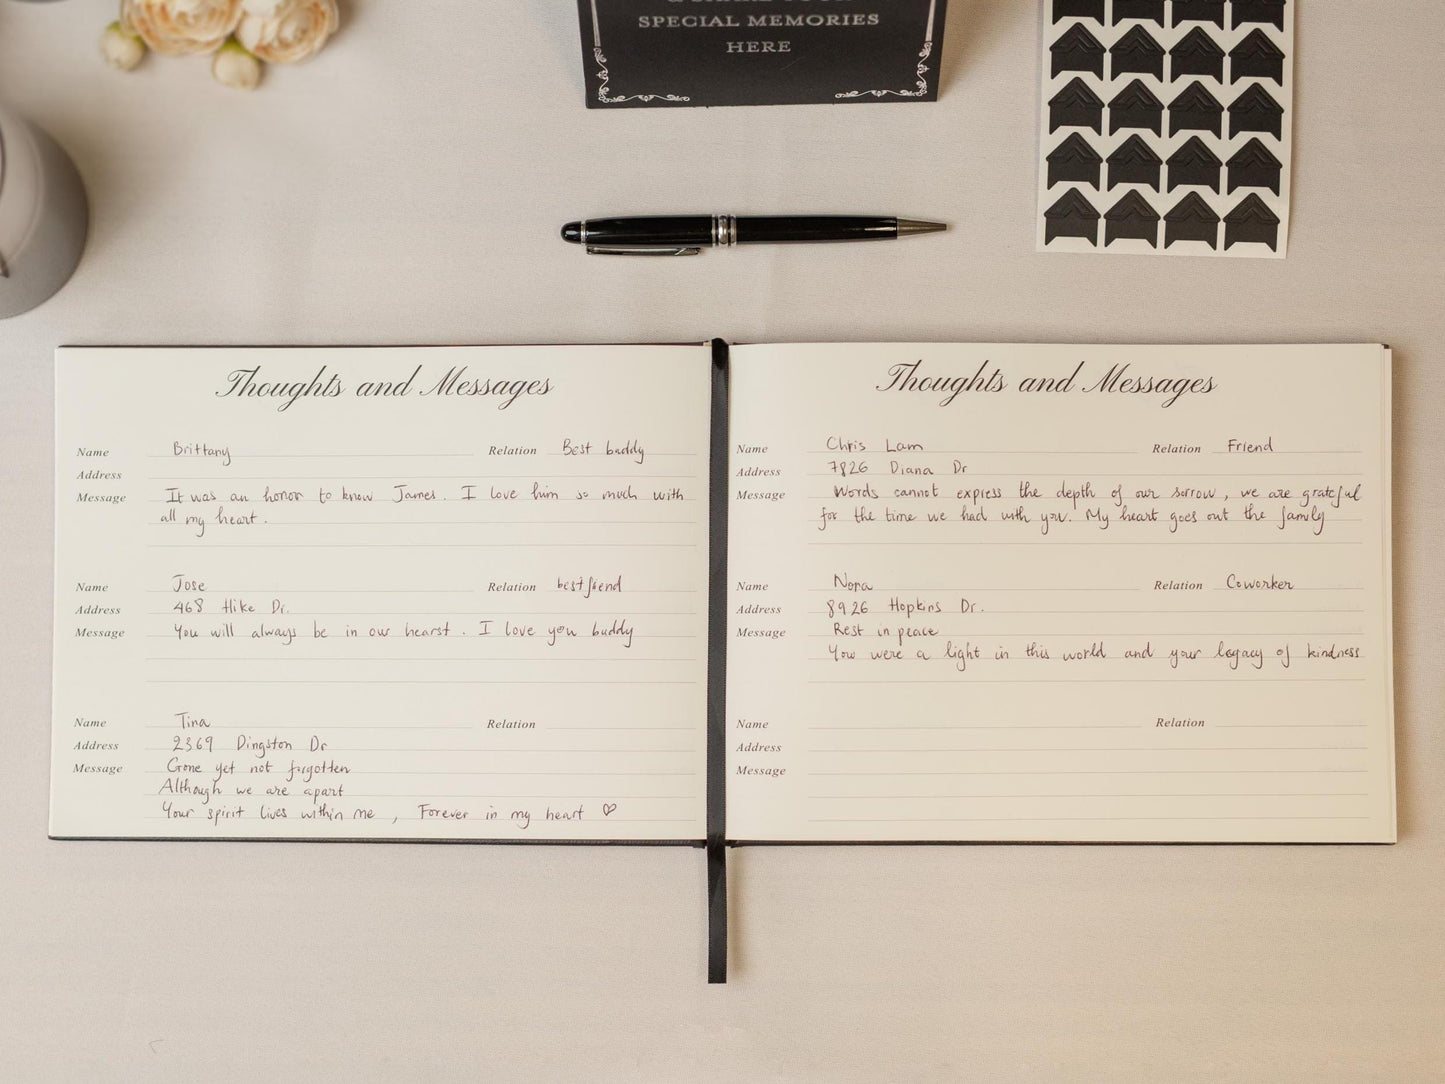 SPECIAL MEMORIES
HERE
Thoughts and Messages
Name Brittany Relation Best buddy
Address
Message It was an honor to know James. I love him so much with
all my heart.
Name Jose Relation bestfriend
Address 468 Hike Dr.
Message You will always be in our hearst. I love you buddy
Name Tina Relation
Address 2369 Dingston Dr
Message Gone yet not forgotten
Although we are apart
Your spirit lives within me, Forever in my heart ♡
Thoughts and Messages
Name Chris Lam Relation Friend
Address 7826 Diana Dr
Message Words cannot express the depth of our sorrow, we are grateful
for the time we had with you. My heart goes out the family
Name Nora Relation Coworker
Address 8926 Hopkins Dr.
Message Rest in peace
You were a light in this world and your legacy of kindness
Name Relation
Address
Message